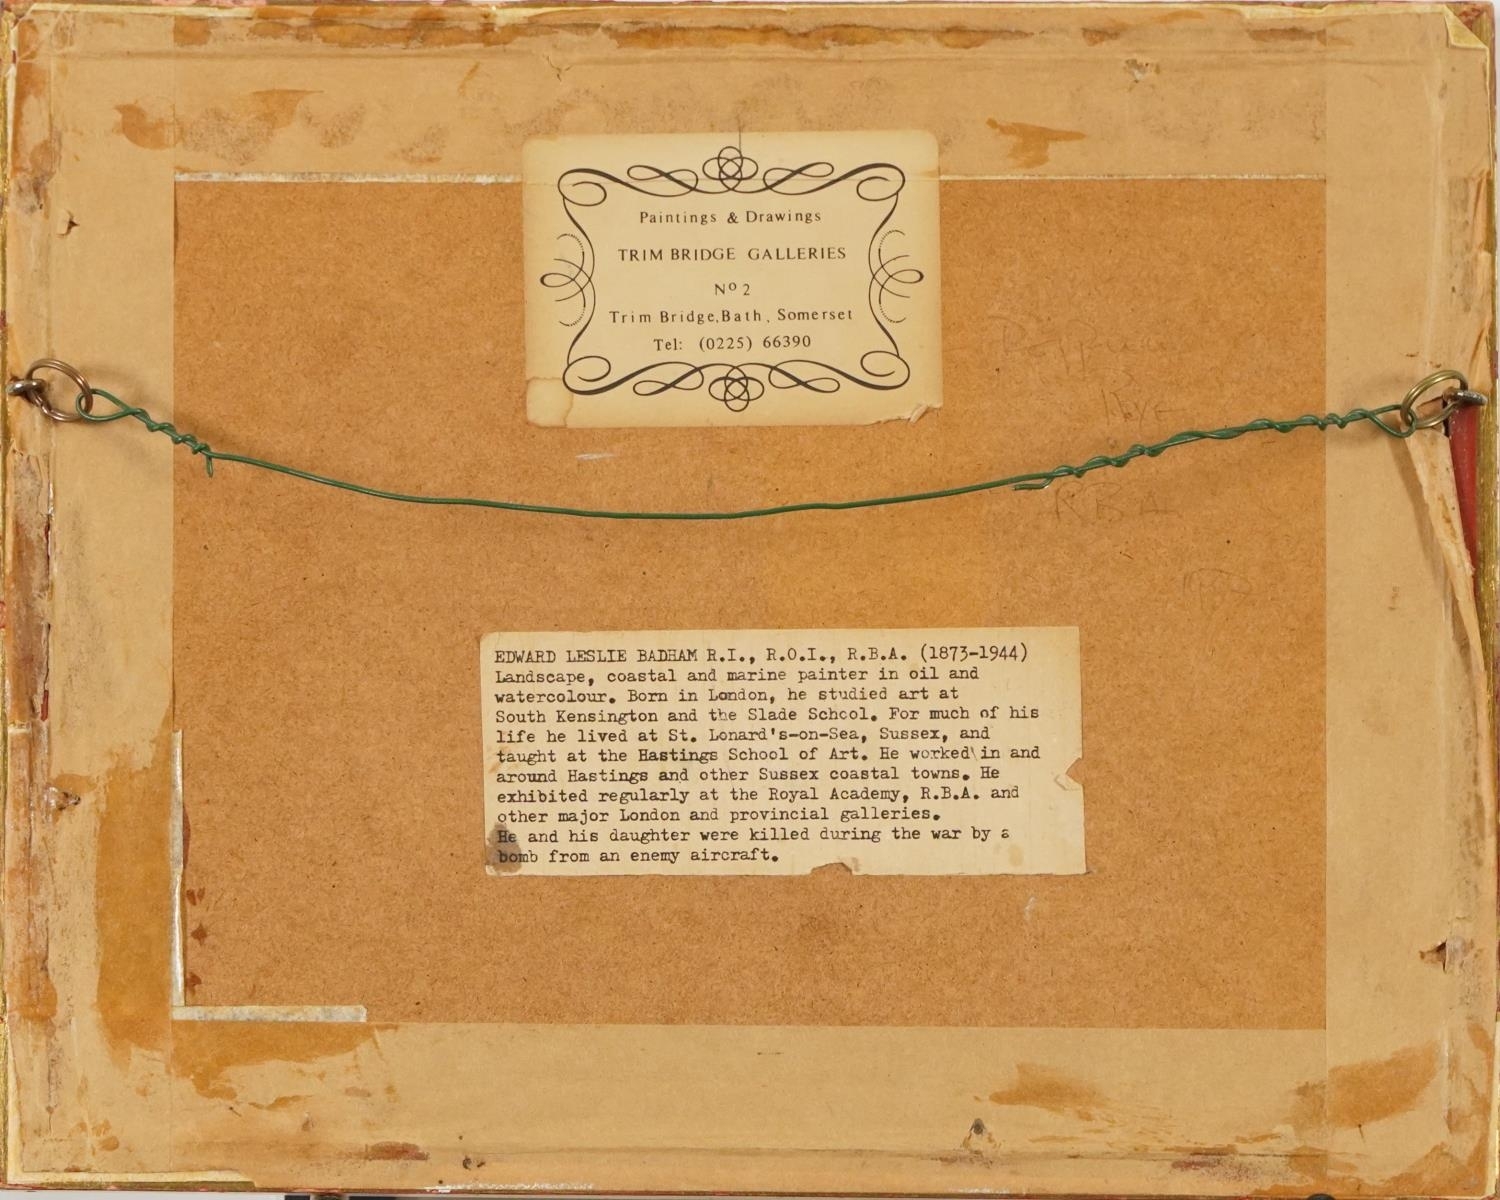 Paintings & Drawings
TRIM BRIDGE GALLERIES
Nº 2
Trim Bridge, Bath, Somerset
Tel: (0225) 66390
RBA
EDWARD LESLIE BADHAM R.I., R.O.I., R.B.A. (1873-1944)
Landscape, coastal and marine painter in oil and
watercolour. Born in London, he studied art at
South Kensington and the Slade School. For much of his
life he lived at St. Lonard's-on-Sea, Sussex, and
taught at the Hastings School of Art. He worked\in and
around Hastings and other Sussex coastal towns. He
exhibited regularly at the Royal Academy, R.B.A. and
other major London and provincial galleries.
He and his daughter were killed during the war by a
bomb from an enemy aircraft.